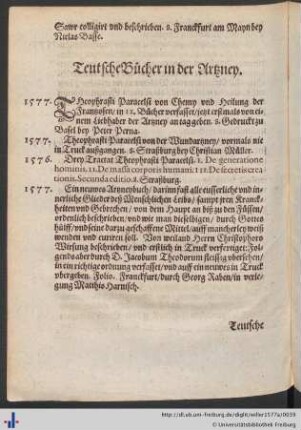 Sawr colligirt vnd beschrieben. 8. Franckfurt am Mayn bey
Niclas Basse.
Teutsche Bücher in der Artzney.
1577. THeophrasti Paracelsi von Ursprung vnd Heilung der
Frantzosen/ in 12. Bücher verfasset/ jetzt erstmals von ei-
nem Liebhaber der Artzney an tag geben. 8. Gedruckt zu
Basel bey Peter Perna.
1577. Theophrasti Paracelsi von der Wundartzney/ vormals nie
in Truck außgangen. 8. Straßburg bey Christian Müller.
1576. Drey Tractat Theophrasti Paracelsi. I. De generatione
hominis. II. De massa corporis humani. III. De secretis crea-
tionis. Secunda editio. 8. Straßburg.
1577. Ein neuwes Artzneybuch/ darinn fast alle eusserliche vnd in-
nerliche Glieder deß Menschlichen Leibs/ sampt jren Kranck-
heiten vnd Gebrechen/ von dem Haupt an biß zu den Füssen/
ordenlich beschrieben/ vnd wie man dieselbigen/ durch Gottes
hülff/ vnd seine darzu geschaffene Mittel/ auff mancherley weiß
wenden vnd curiren soll. Von weiland Herrn Christophoro
Wirsung beschrieben/ vnd erstlich in Truck verfertiget: Fol-
gends aber durch D. Jacobum Theodorum fleissig vbersehen/
in ein richtige ordnung verfasset/ vnd auff ein neuwes in Truck
vbergeben. Folio. Franckfurt/ durch Georg Raben/ in verle-
gung Matthis Harnisch.
Teutsche
http://dl.ub.uni-freiburg.de/diglit/weller1577a/0039
© Universitätsbibliothek Freiburg